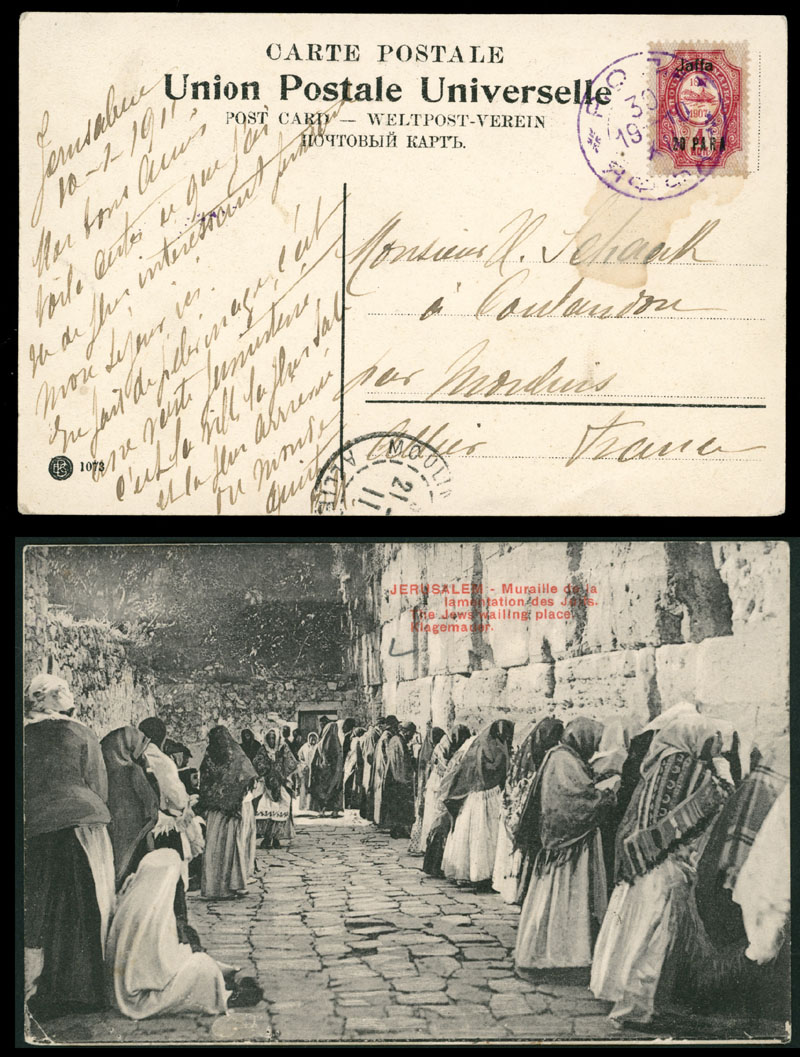 CARTE POSTALE
Union Postale Universelle
POST CARD — WELTPOST-VEREIN
ПОЧТОВЫЙ КАРТЪ.
Jaffa
20 PARA
30
19
Jerusalem
10-1-1911
Mes bons Amis
Voilà certes ce que j'ai
vu de plus intéressant
mon séjour ici.
En fait de pèlerinage, c'est
une vaste
c'est la ville la plus sale
et la plus arriérée
du monde
Monsieur H. Schaack
à Coulandon
par Moulins
Allier France
1073
MOULIN
ALLIE
21
11
JERUSALEM - Muraille de la
lamentation des Juifs.
The Jews wailing place.
Klagemauer.